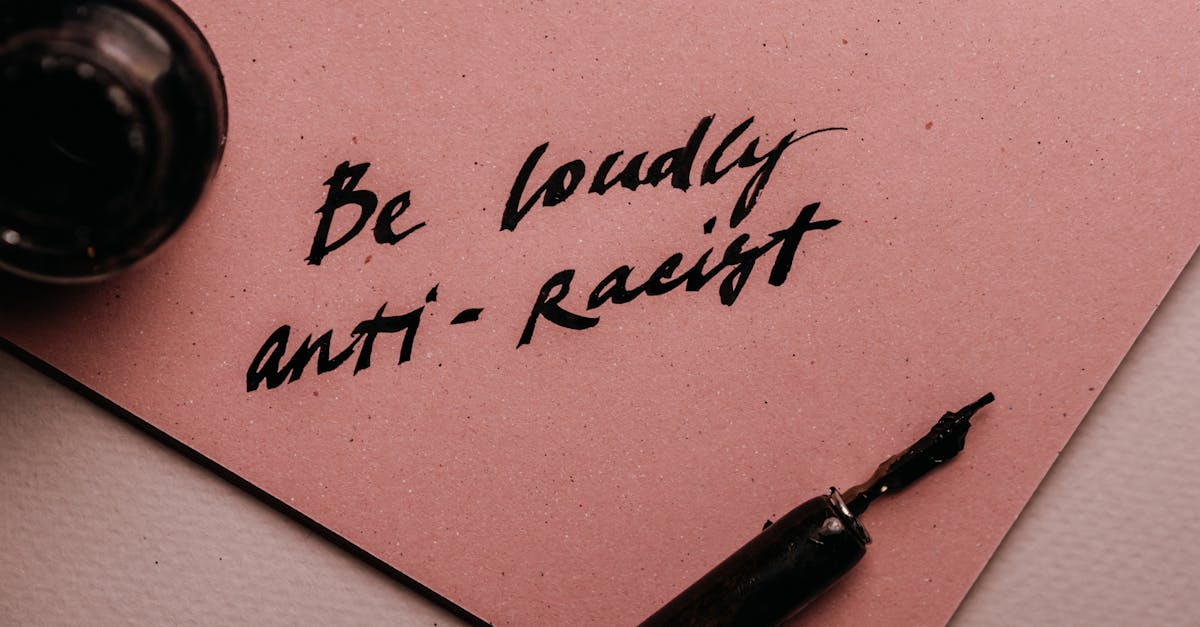 Be loudly
anti-Racist